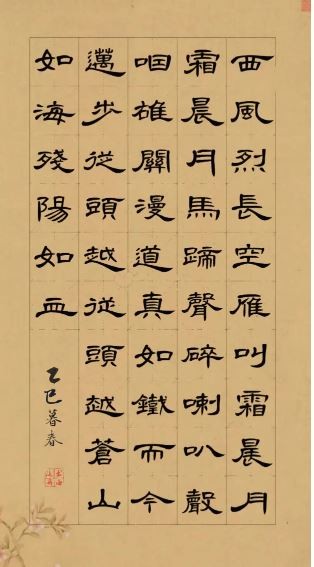 西風烈長空雁叫霜晨月
霜晨月馬蹄聲碎喇叭聲
咽雄關漫道真如鐵而今
邁步從頭越從頭越蒼山
如海殘陽如血
乙巳暮春